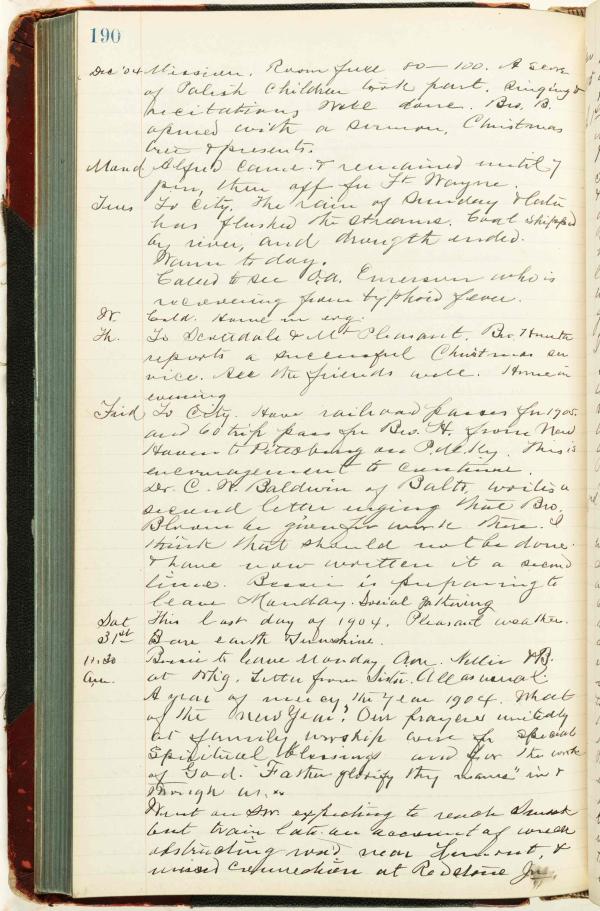 190
Dec '04 Mission. Room full 80-100. A score
of Polish children took part. Singing &
recitations well done. Bro. B.
opened with a sermon. Christmas
tree & presents.
Mond Alfred came & remained until 7
pm, then off for Ft. Wayne.
Tues To City. The rain of Sunday & later
has flushed the streams. Coal shipped
by river, and drougth ended.
Warm to day.
Called to see Emerson who is
recovering from typhoid fever.
W. Cold. Home in evg.
Th. To Scottdale & Mt Pleasant. Bro.
reports a successful Christmas ser
vice. See the friends well. Home in
evening
Frid To City. Have railroad passes for 1905.
and 60 trip pass for Bro. H. from New
Haven to Pittsburg on Ry. This is
encouragement to continue.
Dr. C. W. Baldwin of Balto, writes a
second letter urging that Bro.
be given for work there. I
think that should not be done.
& have now written it a second
time. Bessie is preparing to
leave Monday. Social gathering
Sat This last day of 1904. Pleasant weather.
31st Bare earth. Sunshine.
11:30 Bessie to leave Monday Nellie & B.
at Letter from Sister. All as usual.
A year of mercy the Year 1904. What
of the New Year? Our prayers unitedly
at family worship were for special
Spiritual blessings and for the work
of God. "Father glorify thy name" in &
through us.
Went on expecting to reach
but train late on account of wreck
obstructing road near & 
missed connection at Redstone Jn